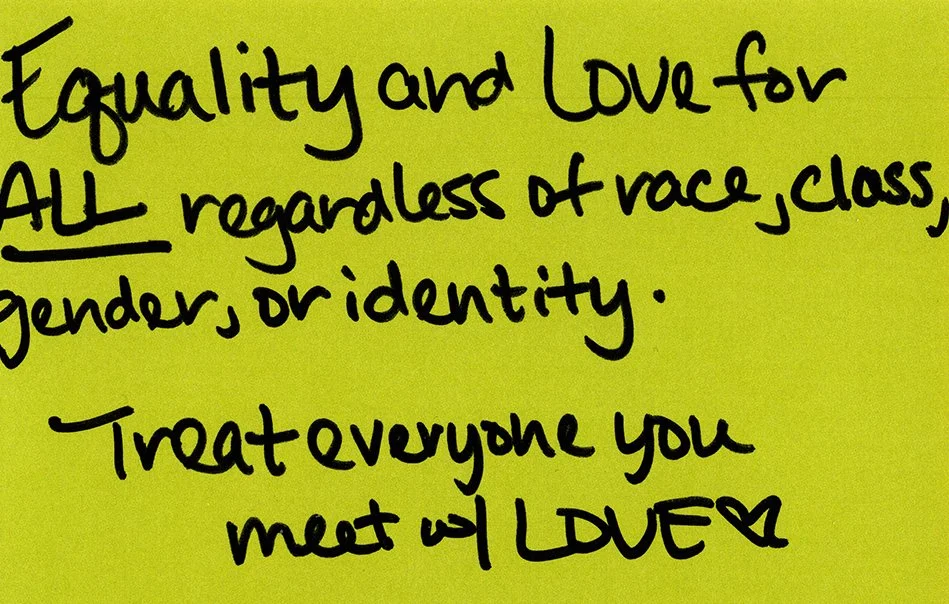 Equality and Love for
ALL regardless of race, class,
gender, or identity.
Treat everyone you
meet w/ LOVE♡